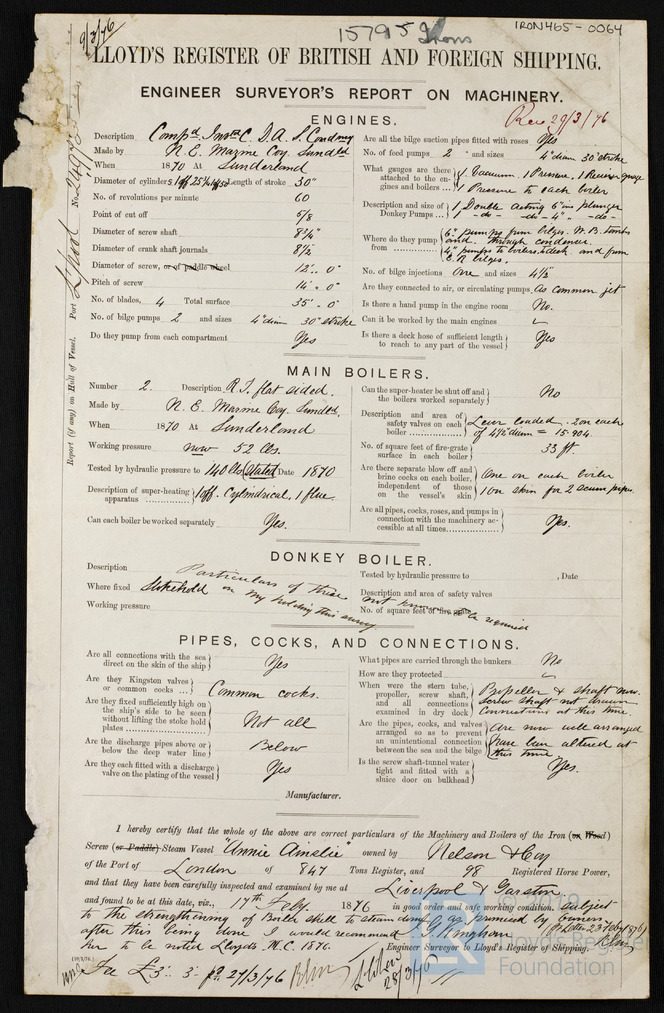 15795 Irons
IRON465-0064
9/3/76
LLOYD'S REGISTER OF BRITISH AND FOREIGN SHIPPING.
ENGINEER SURVEYOR'S REPORT ON MACHINERY.
Rec 29/3/76
Report (if any) on Hull of Vessel. Port L'pool No.
ENGINES.
Description Comp'd Inv'td C. D. A. S. Condensg
Made by N. E. Marine Coy. Sundld
When 1870 At Sunderland
Diameter of cylinders Length of stroke 30"
No. of revolutions per minute 60
Point of cut off 5/8
Diameter of screw shaft 8 3/4"
Diameter of crank shaft journals 8 1/2
Diameter of screw, or of paddle wheel 12'. 0"
Pitch of screw 14'. 0"
No. of blades, 4 Total surface 35'. 0
No. of bilge pumps 2 and sizes 4" diam 30" stroke
Do they pump from each compartment Yes
Are all the bilge suction pipes fitted with roses Yes
No. of feed pumps 2 " and sizes 4" diam 30" stroke
What gauges are there attached to the engines and boilers ... 1 Vacuum. 1 Pressure. 1 Receiver gauge
1 Pressure to each boiler
Description and size of Donkey Pumps ... 1 Double acting 6 ins plunger
1 -do- -do- 4" -do-
Where do they pump from 6" pumps from bilges. W.B. tanks
and through condenser.
4" pumps to boilers & deck and from
E.R bilges.
No. of bilge injections One and sizes 4 1/2
Are they connected to air, or circulating pumps as common jet
Is there a hand pump in the engine room No.
Can it be worked by the main engines
Is there a deck hose of sufficient length to reach to any part of the vessel Yes
MAIN BOILERS.
Number 2. Description R.T. flat sided.
Made by N. E. Marine Coy. Sundld.
When 1870 At Sunderland
Working pressure now 52 lbs.
Tested by hydraulic pressure to 140 lbs Stated Date 1870
Description of super-heating apparatus 1 off. Cylindrical, 1 flue.
Can each boiler be worked separately Yes.
Can the super-heater be shut off and the boilers worked separately No
Description and area of safety valves on each boiler Lever loaded. 2 on each
of 4 1/2 diam = 15.904
No. of square feet of fire-grate surface in each boiler 33 ft
Are there separate blow off and brine cocks on each boiler, independent of those on the vessel's skin One on each boiler
1 on skin for 2 scum pipes.
Are all pipes, cocks, roses, and pumps in connection with the machinery accessible at all times Yes.
DONKEY BOILER.
Description
Where fixed Stokehold
Working pressure
Particulars of these
on my holding this survey
Tested by hydraulic pressure to , Date
Description and area of safety valves
No. of square feet of fire
not known
PIPES, COCKS, AND CONNECTIONS.
Are all connections with the sea direct on the skin of the ship Yes
Are they Kingston valves or common cocks ... Common cocks.
Are they fixed sufficiently high on the ship's side to be seen without lifting the stoke hold plates Not all
Are the discharge pipes above or below the deep water line Below
Are they each fitted with a discharge valve on the plating of the vessel Yes
What pipes are carried through the bunkers No
How are they protected
When were the stern tube, propeller, screw shaft, and all connections examined in dry dock Propeller & shaft now.
Screw shaft not drawn
Connections at this time
Are the pipes, cocks, and valves arranged so as to prevent an unintentional connection between the sea and the bilge Are now well arranged
have been altered at
this time
Is the screw shaft-tunnel water tight and fitted with a sluice door on bulkhead Yes.
Manufacturer.
I hereby certify that the whole of the above are correct particulars of the Machinery and Boilers of the Iron (or Wood)
Screw (or Paddle) Steam Vessel "Annie Ainslie" owned by Nelson & Coy
of the Port of London of 847 Tons Register, and 98 Registered Horse Power,
and that they have been carefully inspected and examined by me at Liverpool & Garston
and found to be at this date, viz., 17th Feby. 1876 in good order and safe working condition. Subject
to the strengthening of Boiler shell to steam dome as promised by owners
after this being done I would recommend (p Letter 23 Feby 1876)
her to be noted Lloyds. M.C. 1876.
Engineer Surveyor to Lloyd's Register of Shipping.
Fee £3. 3. pd 27/3/76
28/3/76
Lloyd's Register
Foundation